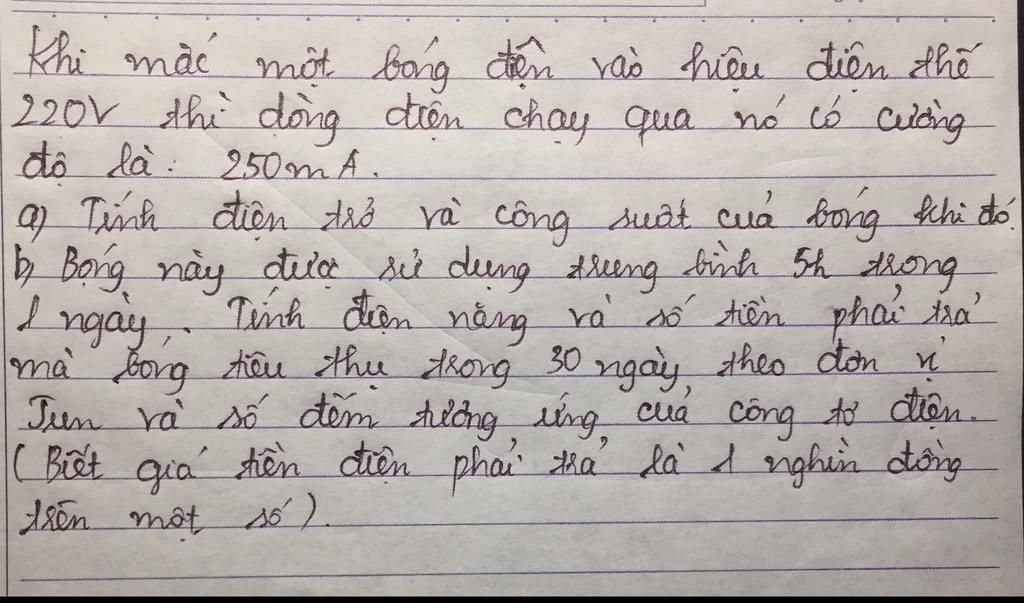 Khi mắc một bóng điện vào hiệu điện thế
220V thì dòng điện chạy qua nó có cường
độ là: 250mA.
a) Tính điện trở và công suất của bóng khi đó.
b) Bóng này được sử dụng trung bình 5h trong
1 ngày. Tính điện năng và số tiền phải trả
mà bóng tiêu thụ trong 30 ngày theo đơn vị
Jun và số đếm tương ứng của công tơ điện.
(Biết giá tiền điện phải trả là 1 nghìn đồng
trên một số).